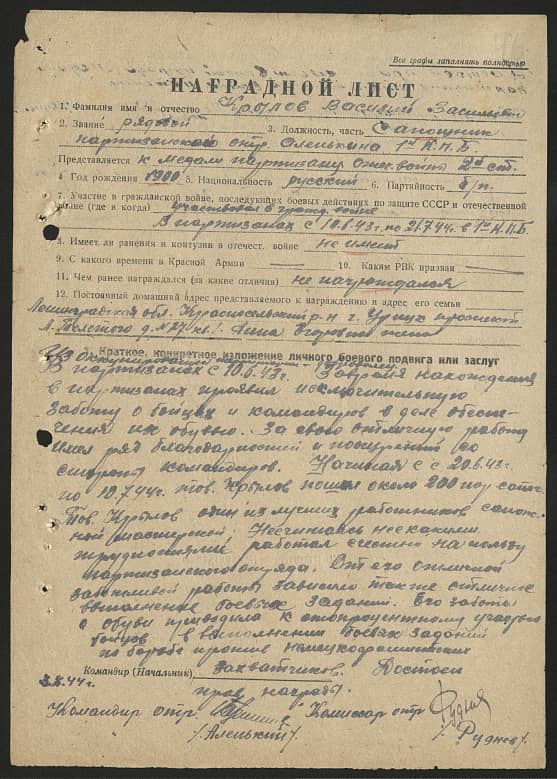 Все графы заполнять полностью
НАГРАДНОЙ ЛИСТ
1. Фамилия имя и отчество Крылов Василий Васильевич
2. Звание рядовой 3. Должность, часть Сапожник
партизанского отр. Оленькина 1ой К.П.Б.
Представляется к медали партизану отеч. войны 2й ст.
4 Год рождения 1900 5. Национальность русский 6. Партийность б/п.
7. Участие в гражданской войне, последующих боевых действиях по защите СССР и отечественной
войне (где и когда) участвовал в гражд. войне
В партизанах с 10.6.43г. по 21.7.44г. в 1ой К.П.Б.
8. Имеет ли ранения и контузии в отечест. войне не имеет
9. С какого времени в Красной Армии 10. Каким РВК призван
11. Чем ранее награждался (за какие отличия) не награждался
12. Постоянный домашний адрес представляемого к награждению и адрес его семьи
Ленинградская обл. Красносельский р-н г. Урицк проспект
Л. Толстого д. №27 кв. 1. Анна Егоровна жена
Краткое, конкретное изложение личного боевого подвига или заслуг
В партизанах с 10.6.43г. За время нахождения
в партизанах проявил исключительную
заботу о бойцах и командиров в деле обеспе-
чения их обувью. За свою отличную работу
имел ряд благодарностей и поощрений со
стороны командиров. Начиная с с 20.6.43г.
по 10.7.44г. тов. Крылов пошил около 200 пар сапог.
Тов. Крылов один из лучших работников сапож-
ной мастерской. Несчитаясь нескакими
трудностями работал честно на пользу
партизанского отряда. От его отличной
заботливой работы зависело также отличное
выполнение боевых заданий. Его забота
о обуви приводила к стопроцентному участию
бойцов в выполнении боевых заданий
по борьбе против немецкофашистских
Командир (Начальник) захватчиков. Достоин
прав. награды.
Командир отр. Комиссар отр.
/Аленький/ /Руднев/.